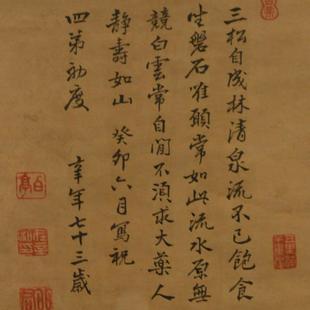 三松自成林清泉流不已飽食
坐磐石唯願常如此流水原無
競白雲常自閒不須求大藥人
靜壽如山 癸卯六月寫祝
四弟初度
辛年七十三歲